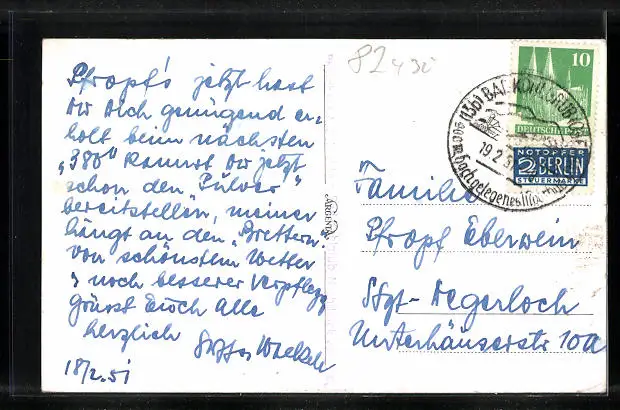 82430
Pfropf's jetzt hast
Du Dich genügend er-
holt beim nächsten
"380" kannst Du jetzt
schon den "Pulver"
bereitstellen, meiner
hängt an den "Brettern"
von schönstem Wetter
u noch besserer Verpflegg
grüsst Euch alle
herzlich
18/2.51
ARGENTA
10
DEUTSCHE POST
NOTOPFER
2 BERLIN
STEUERMARKE
(13b) BAD KOHLGRUB
19.2.5
900 m hochgelegenes
Familie
Pfropf Eberwein
Stgt-Degerloch
Unterhäuserstr 10a